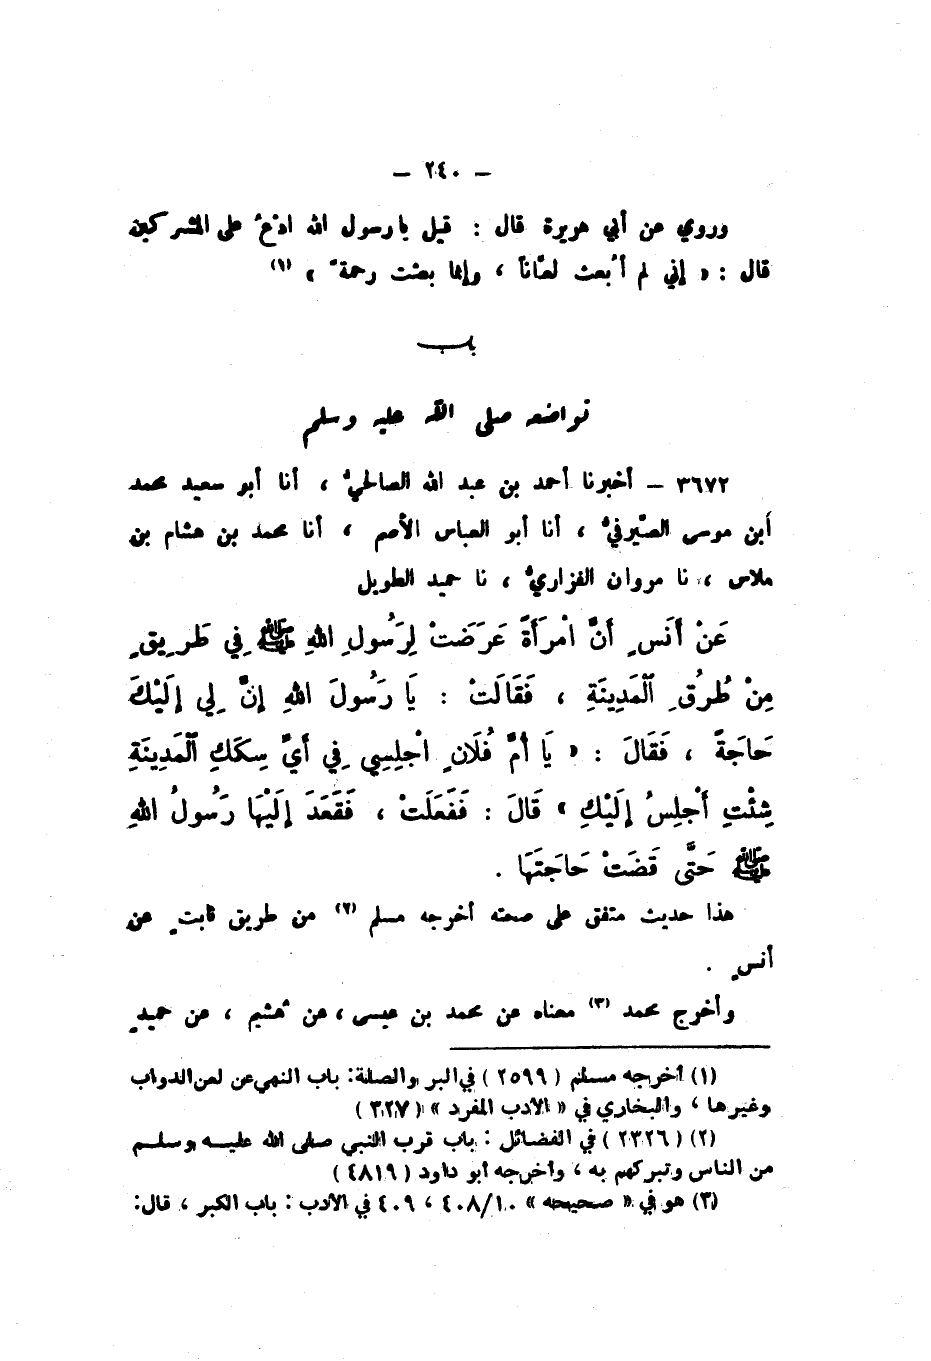 – ٢٤٠ –
وروي عن أبي هريرة قال : قيل يا رسول الله ادْعُ على المشركين
قال : « إني لم أُبعث لعّاناً ، وإنما بعثت رحمةً » (١)
باب
تواضعه صلى الله عليه وسلم
٣٦٧٢ – أخبرنا أحمد بن عبد الله الصالحيُّ ، أنا أبو سعيد محمد
أبن موسى الصَّيرفيُّ ، أنا أبو العباس الأصم ، أنا محمد بن هشام بن
ملاس ، نا مروان الفزاريُّ ، نا حميد الطويل
عَنْ أَنَسٍ أَنَّ امْرَأَةً عَرَضَتْ لِرَسُولِ اللهِ ﷺ فِي طَرِيقٍ
مِنْ طُرُقِ ٱلْمَدِينَةِ ، فَقَالَتْ : يَا رَسُولَ اللهِ إِنَّ لِي إِلَيْكَ
حَاجَةً ، فَقَالَ : « يَا أُمَّ فُلَانٍ اجْلِسِي فِي أَيِّ سِكَكِ ٱلْمَدِينَةِ
شِئْتِ أَجْلِسُ إِلَيْكِ » قَالَ : فَفَعَلَتْ ، فَقَعَدَ إِلَيْهَا رَسُولُ اللهِ
ﷺ حَتَّى قَضَتْ حَاجَتَهَا .
هذا حديث متفق على صحته أخرجه مسلم (٢) من طريق ثابتٍ عن
أنسٍ .
وأخرج محمد (٣) معناه عن محمد بن عيسى ، عن هُشيم ، عن حميدٍ
(١) أخرجه مسلم ( ٢٥٩٩ ) في البر والصلة: باب النهي عن لعن الدواب
وغيرها ، والبخاري في « الأدب المفرد » ( ٣٢٧ )
(٢) ( ٢٣٢٦ ) في الفضائل : باب قرب النبي صلى الله عليه وسلم
من الناس وتبركهم به ، وأخرجه أبو داود ( ٤٨١٩ )
(٣) هو في « صحيحه » ٤٠٨/١٠ ، ٤٠٩ في الأدب : باب الكبر ، قال: